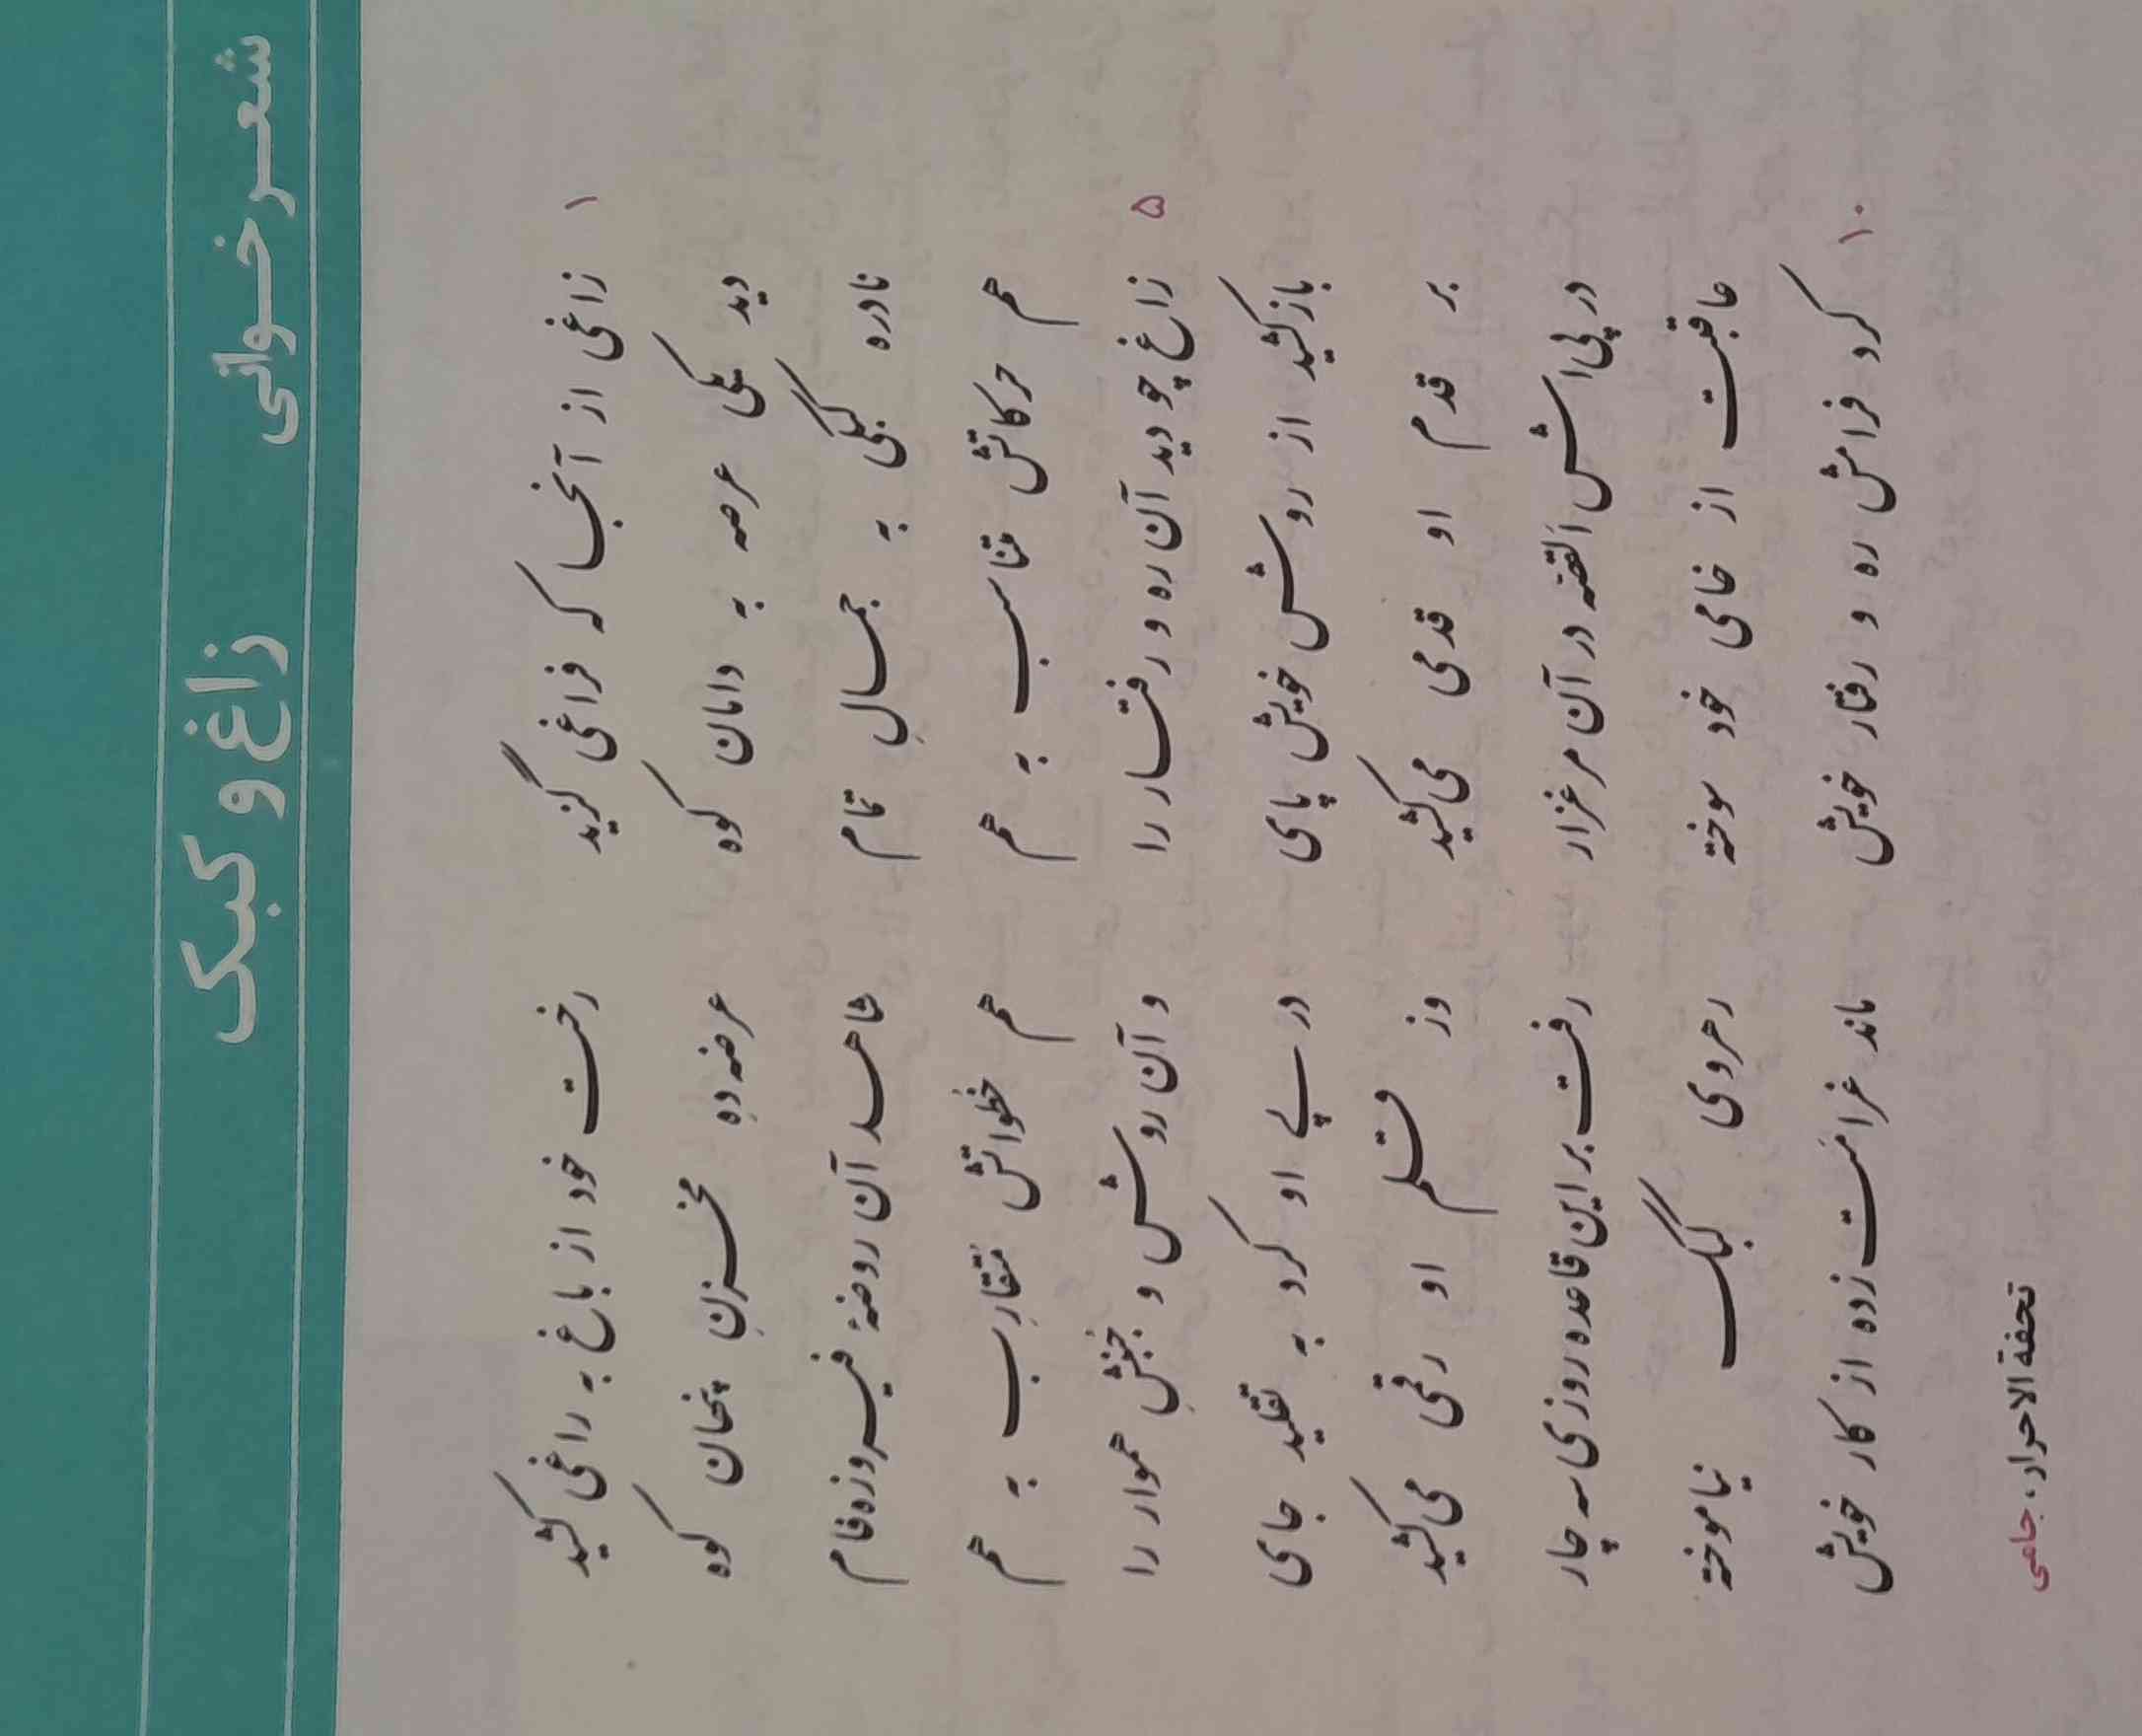 شعرخوانی زاغ و کبک
۱ زاغی از آنجا که فراغی گزید رخت خود از باغ به راغی کشید
دید یکی عرصه به دامان کوه عرضه ده مخزنِ پنهان کوه
نادره کبکی به جمالِ تمام شاهد آن روضهٔ فیروزه‌فام
هم حرکاتش متناسب به هم هم خُطُواتش مُتَقارِب به هم
۵ زاغ چو دید آن ره و رفتار را و آن روش و جُنبشِ هموار را
بازکشید از روش خویش پای در پے او کرد به تقلید جای
بر قدم او قدمی می‌کشید وز قلم او رقمی می‌کشید
در پی‌اش القصّه در آن مرغزار رفت بر این قاعده روزی سه چار
عاقبت از خامی خود سوخته رهروی کبک نیاموخته
۱۰ کرد فرامش ره و رفتار خویش ماند غرامَت زده از کار خویش
تحفة الاحرار، جامی